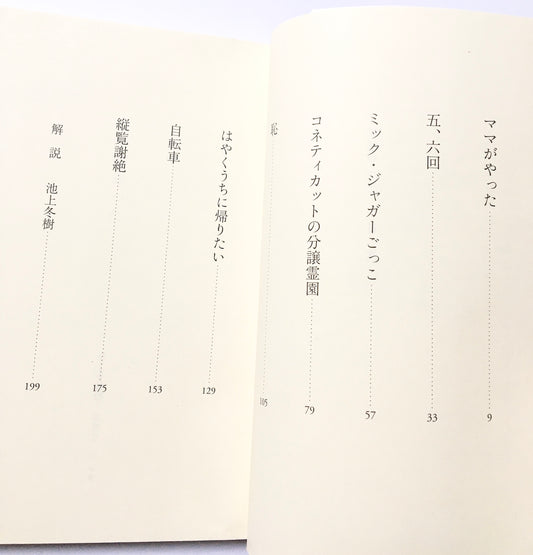 ママがやった 9
五、六回 33
ミック・ジャガーごっこ 57
コネティカットの分譲霊園 79
恥 105
はやくうちに帰りたい 129
自転車 153
縦覧謝絶 175
解説 池上冬樹 199